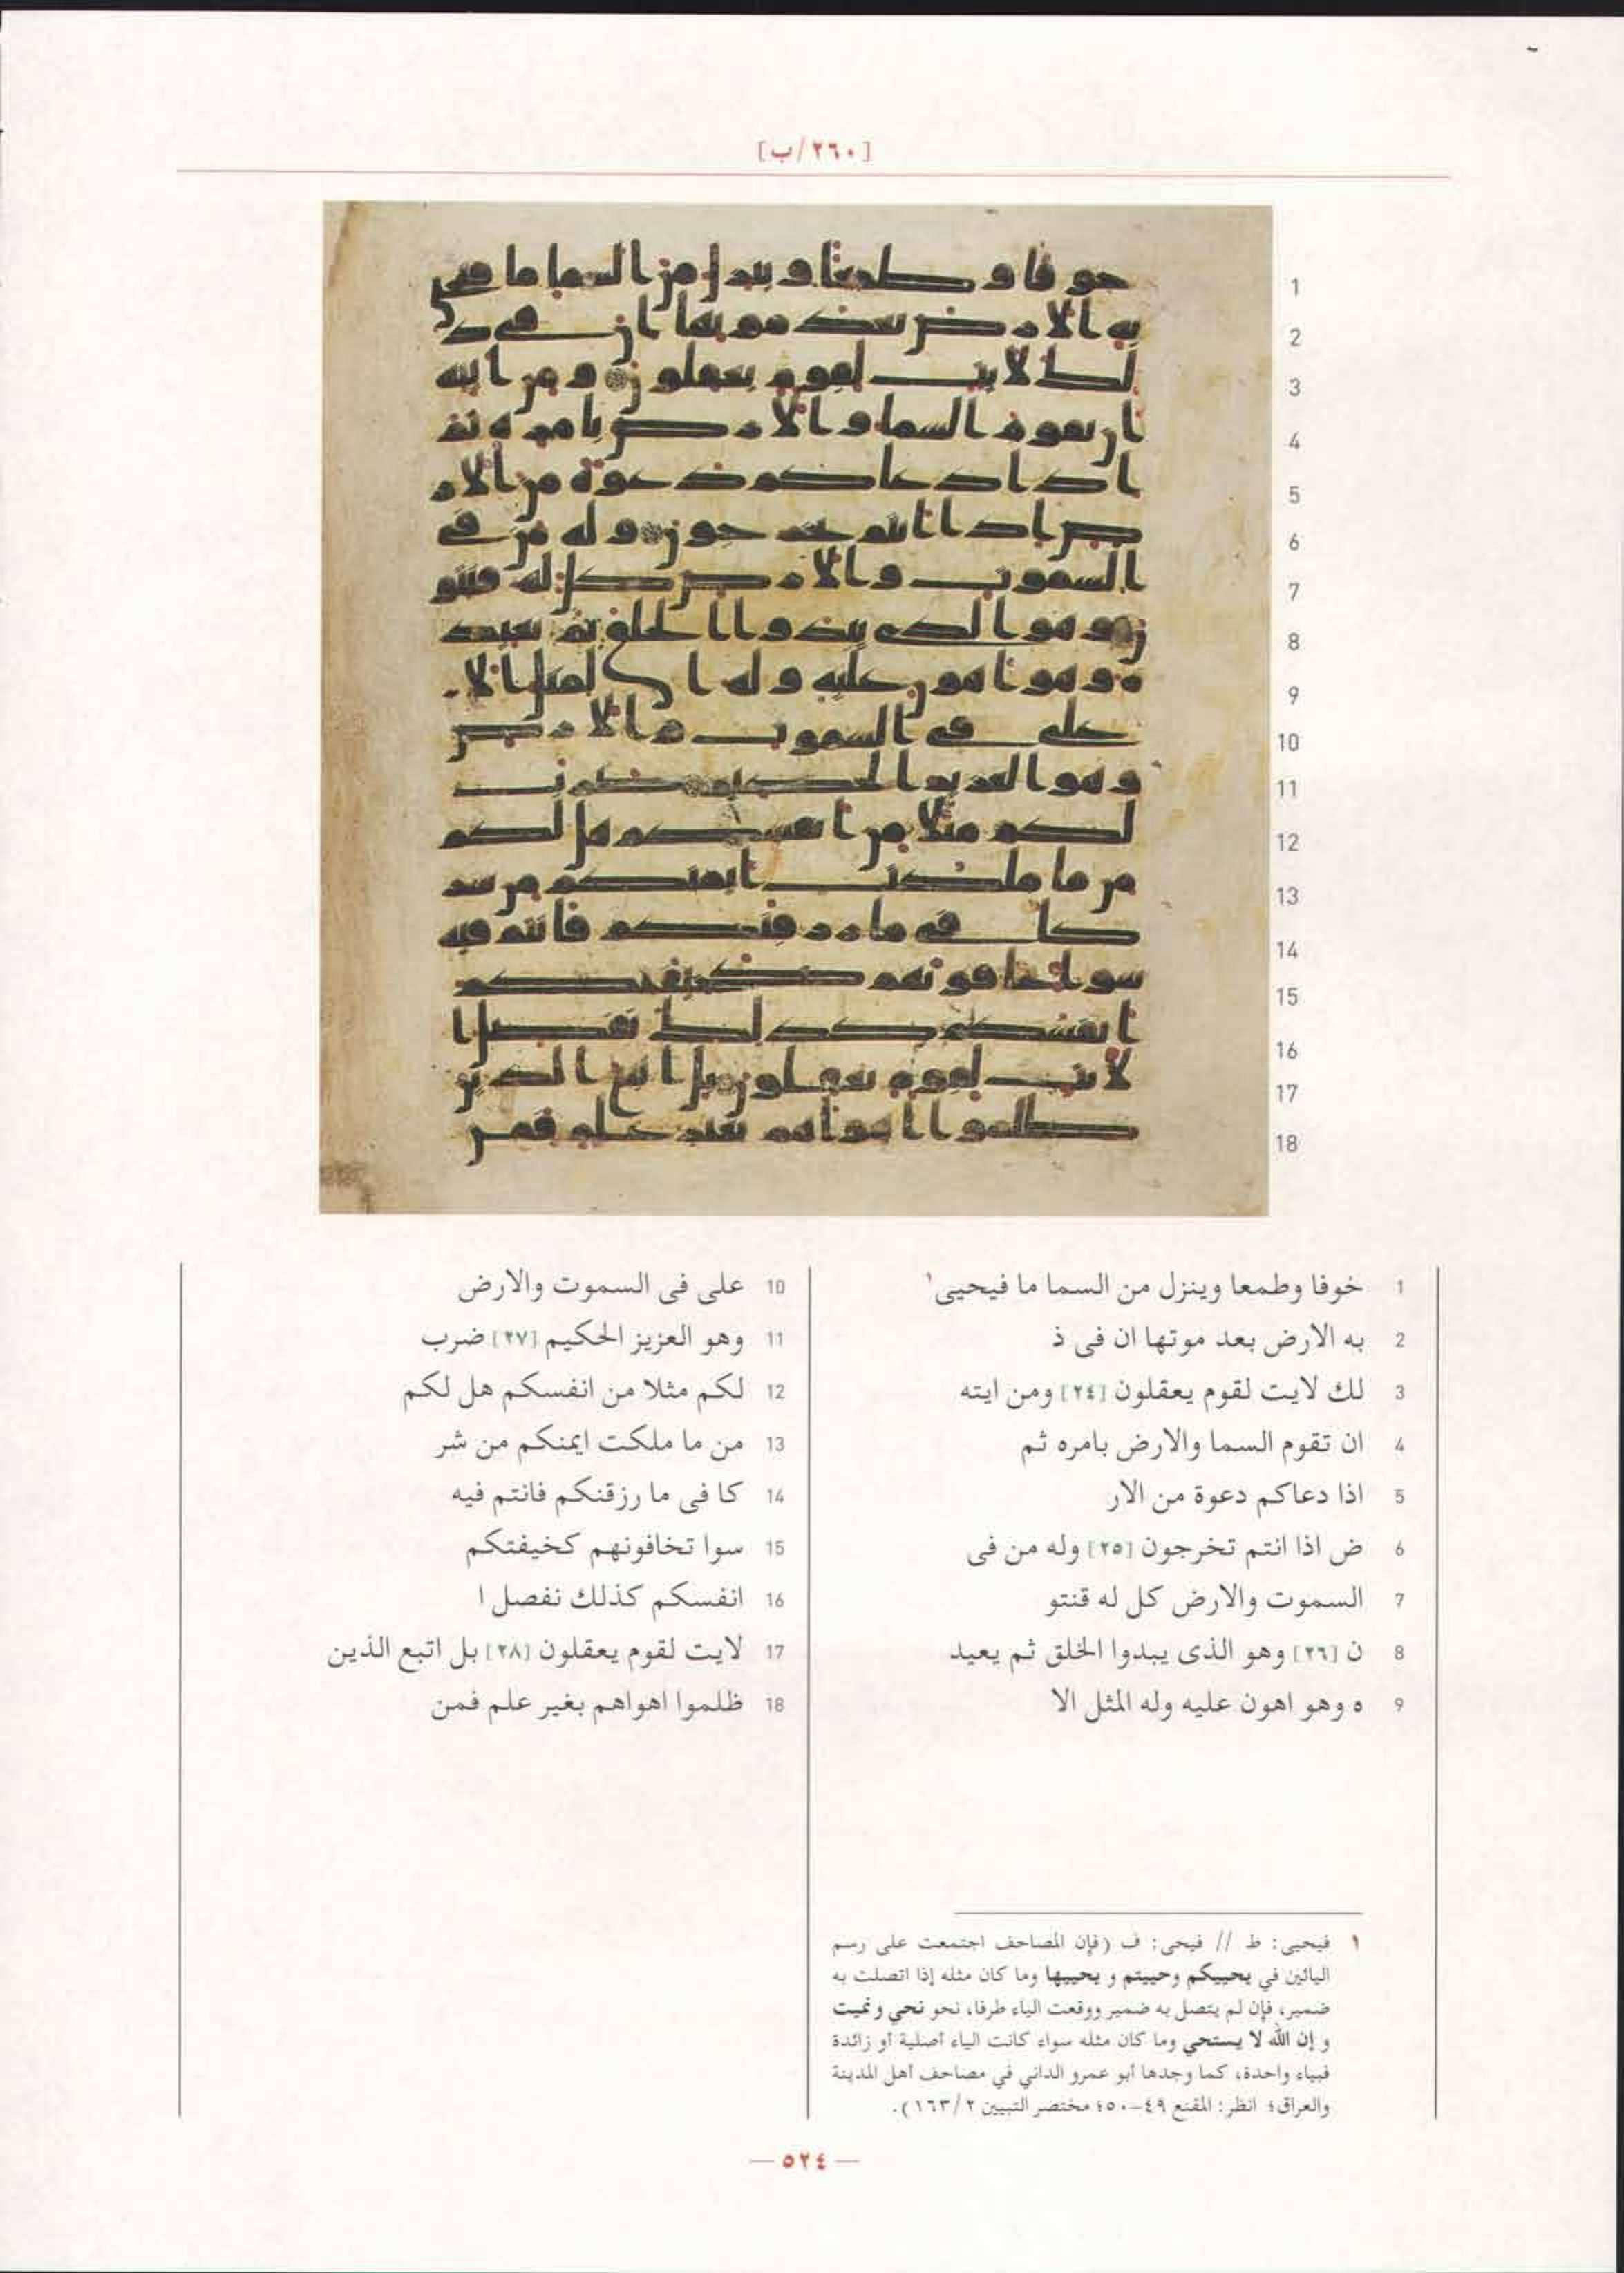 [٢٦٠/ب]
1 خوفا وطمعا وينزل من السما ما فيحيى١
2 به الارض بعد موتها ان فى ذ
3 لك لايت لقوم يعقلون [٢٤] ومن ايته
4 ان تقوم السما والارض بامره ثم
5 اذا دعاكم دعوة من الار
6 ض اذا انتم تخرجون [٢٥] وله من فى
7 السموت والارض كل له قنتو
8 ن [٢٦] وهو الذى يبدوا الخلق ثم يعيد
9 ه وهو اهون عليه وله المثل الا
10 على فى السموت والارض
11 وهو العزيز الحكيم [٢٧] ضرب
12 لكم مثلا من انفسكم هل لكم
13 من ما ملكت ايمنكم من شر
14 كا فى ما رزقنكم فانتم فيه
15 سوا تخافونهم كخيفتكم
16 انفسكم كذلك نفصل ا
17 لايت لقوم يعقلون [٢٨] بل اتبع الذين
18 ظلموا اهواهم بغير علم فمن
١ فيحيى: ط // فيحى: ف (فإن المصاحف اجتمعت على رسم
اليائين في يحييكم وحييتم و يحييها وما كان مثله إذا اتصلت به
ضمير، فإن لم يتصل به ضمير ووقعت الياء طرفا، نحو نحي ونميت
و إن الله لا يستحي وما كان مثله سواء كانت الياء أصلية أو زائدة
فبياء واحدة، كما وجدها أبو عمرو الداني في مصاحف أهل المدينة
والعراق؛ انظر: المقنع ٤٩-٥٠؛ مختصر التبيين ٢/ ١٦٣).
— ٥٢٤ —